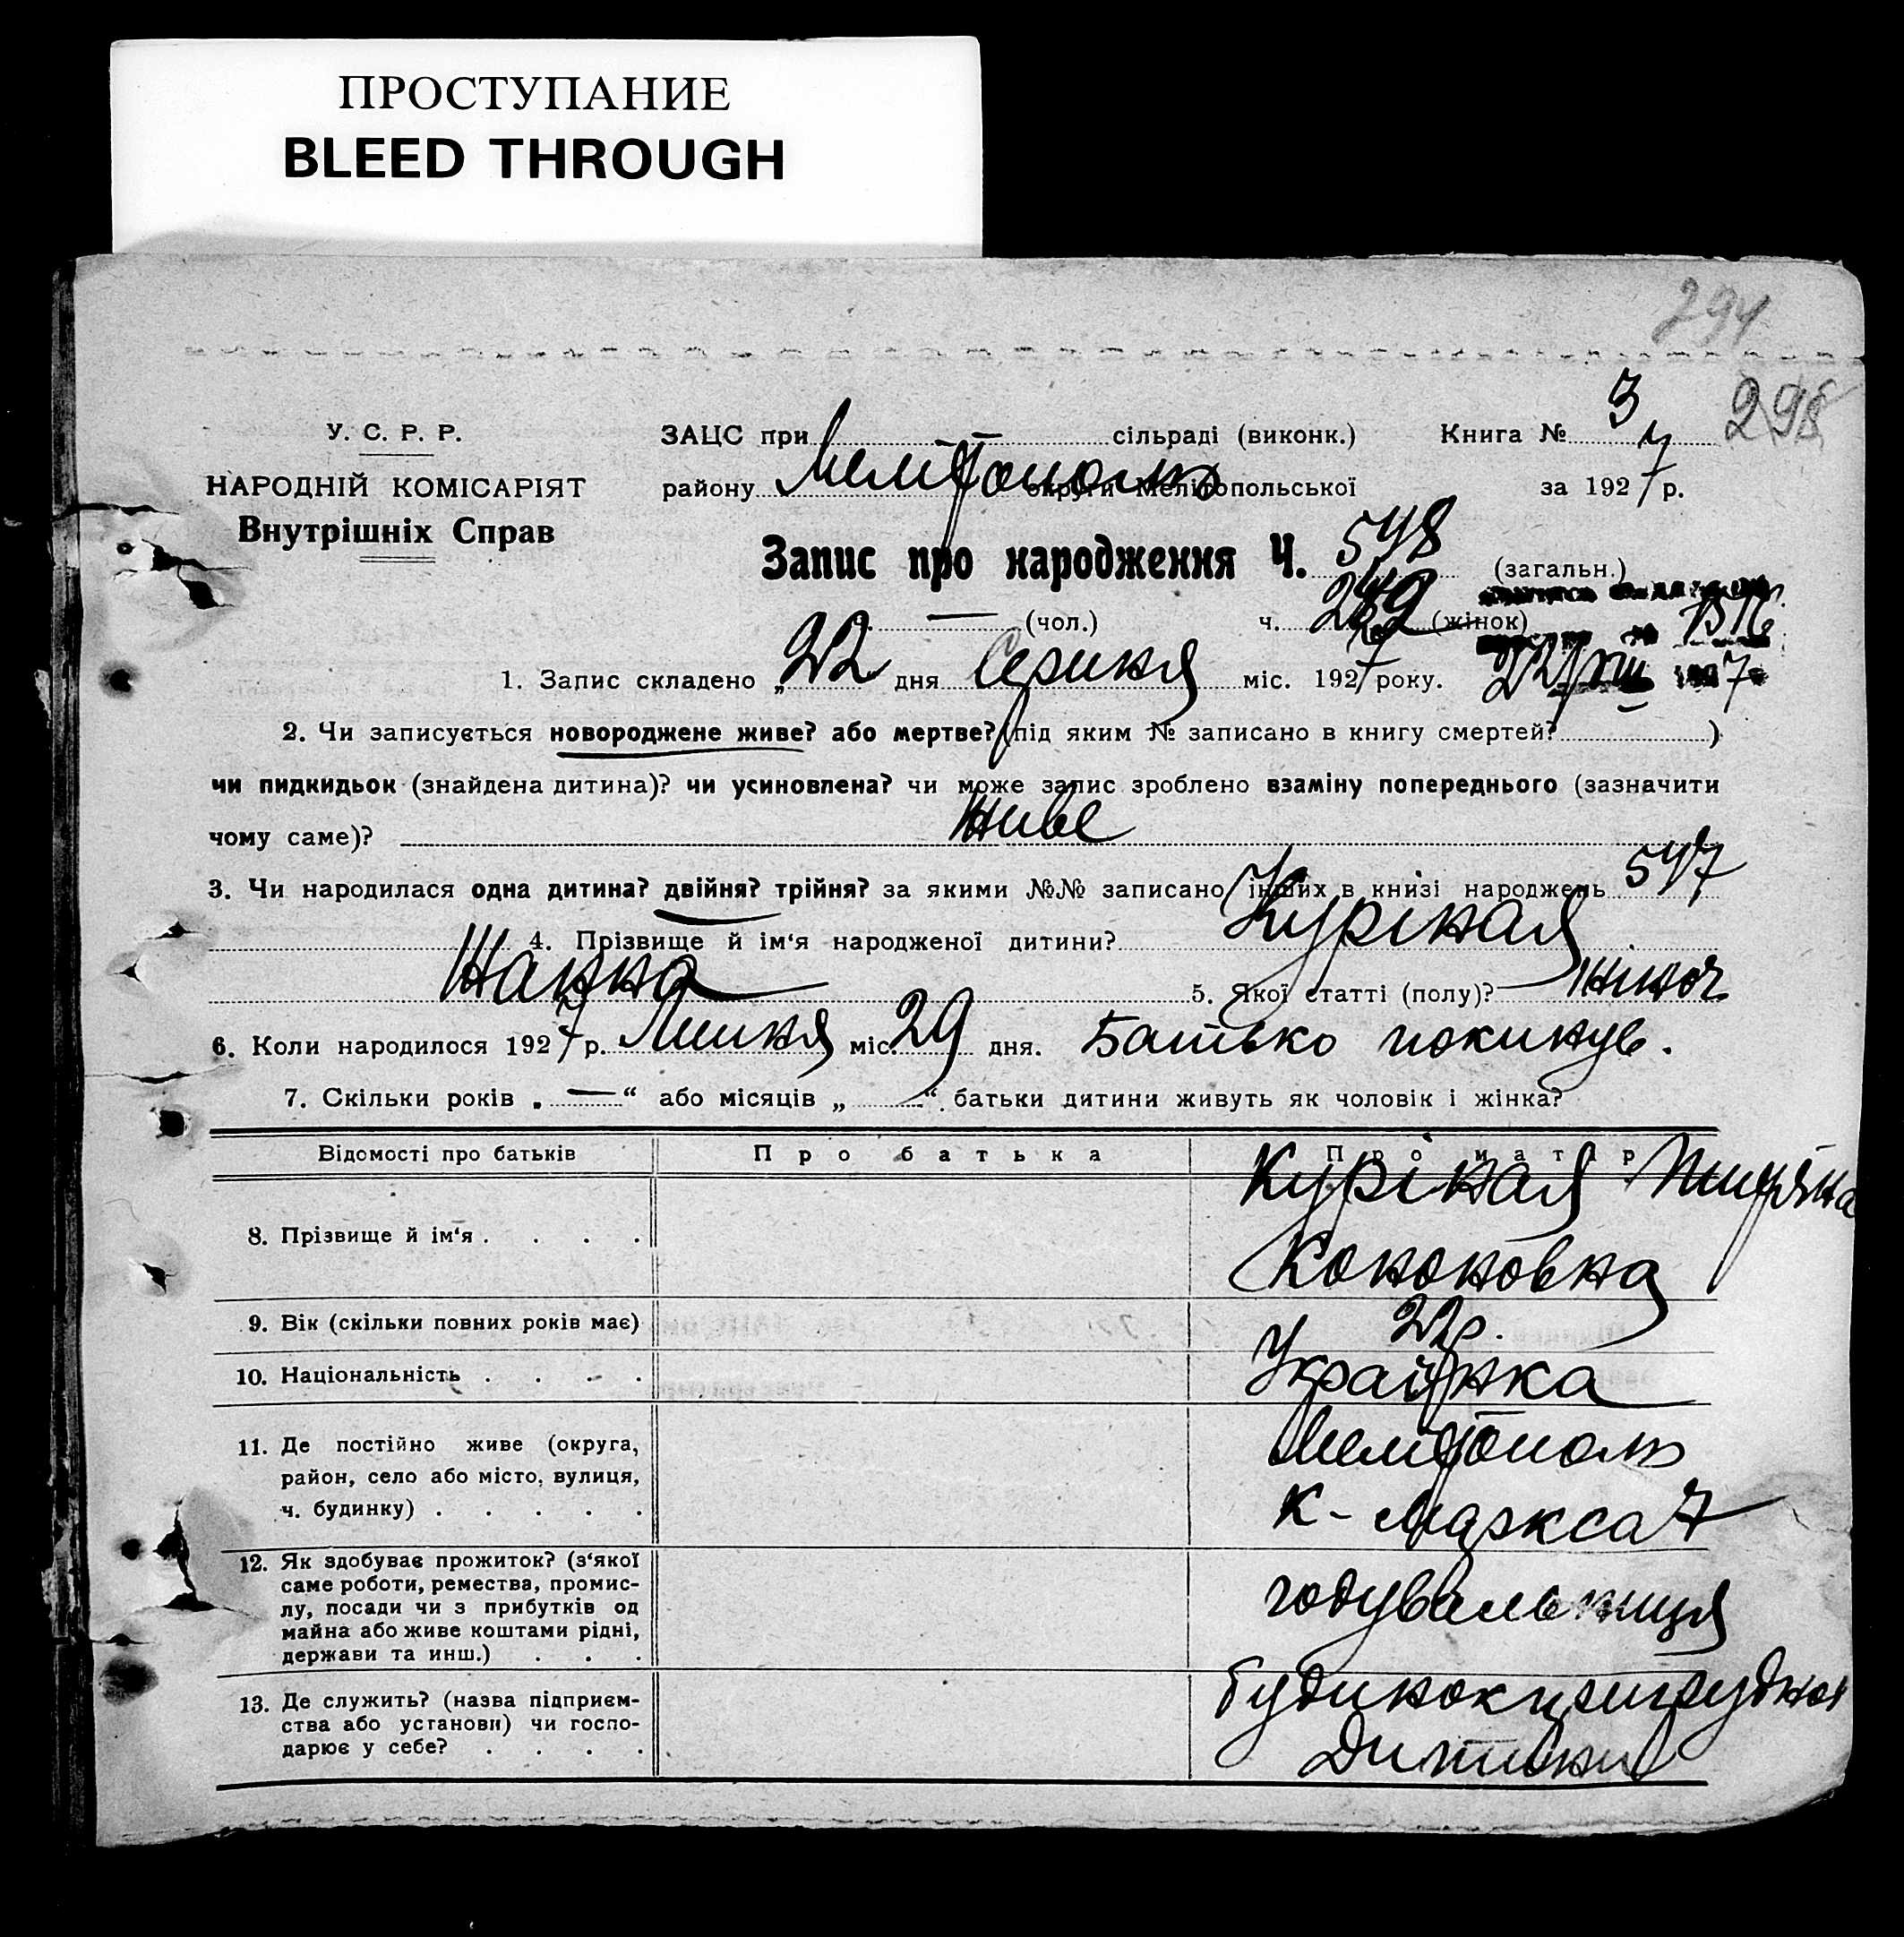 ПРОСТУПАНИЕ
BLEED THROUGH
294
298
У. С. Р. Р.
НАРОДНІЙ КОМІСАРІЯТ
Внутрішніх Справ
ЗАЦС при сільраді (виконк.) Книга № 3
району Мелітополь округи Мелітопольської за 1927 р.
Запис про народження Ч. 548 (загальн.)
— (чол.) ч. 289 (жінок)
1. Запис складено „22 дня Серпня міс. 1927 року.
2. Чи записується новороджене живе? або мертве? (під яким № записано в книгу смертей? )
чи пидкидьок (знайдена дитина)? чи усиновлена? чи може запис зроблено взаміну попереднього (зазначити
чому саме)? живе
3. Чи народилася одна дитина? двійня? трійня? за якими №№ записано інших в книзі народжень 547
4. Прізвище й ім‘я народженої дитини? Курікая
Жанна 5. Якої статті (полу)? жіноч
6. Коли народилося 1927 р. Липня міс. 29 дня. Батько покинув.
7. Скільки років „ — “ або місяців „ “ батьки дитини живуть як чоловік і жінка?
Відомості про батьків Про батька Про матір
8. Прізвище й ім‘я . . . . Курікая
Кононовна
9. Вік (скільки повних років має) 22 р.
10. Національність . . . . Українка
11. Де постійно живе (округа,
район, село або місто, вулиця,
ч. будинку) . . . . . Мелітополь
К-Маркса 7
12. Як здобуває прожиток? (з‘якої
саме роботи, ремества, промис-
лу, посади чи з прибутків од
майна або живе коштами рідні,
держави та инш.) . . . годувальниця
13. Де служить? (назва підприєм-
ства або установи) чи госпо-
дарює у себе? . . . . будинок
дитини